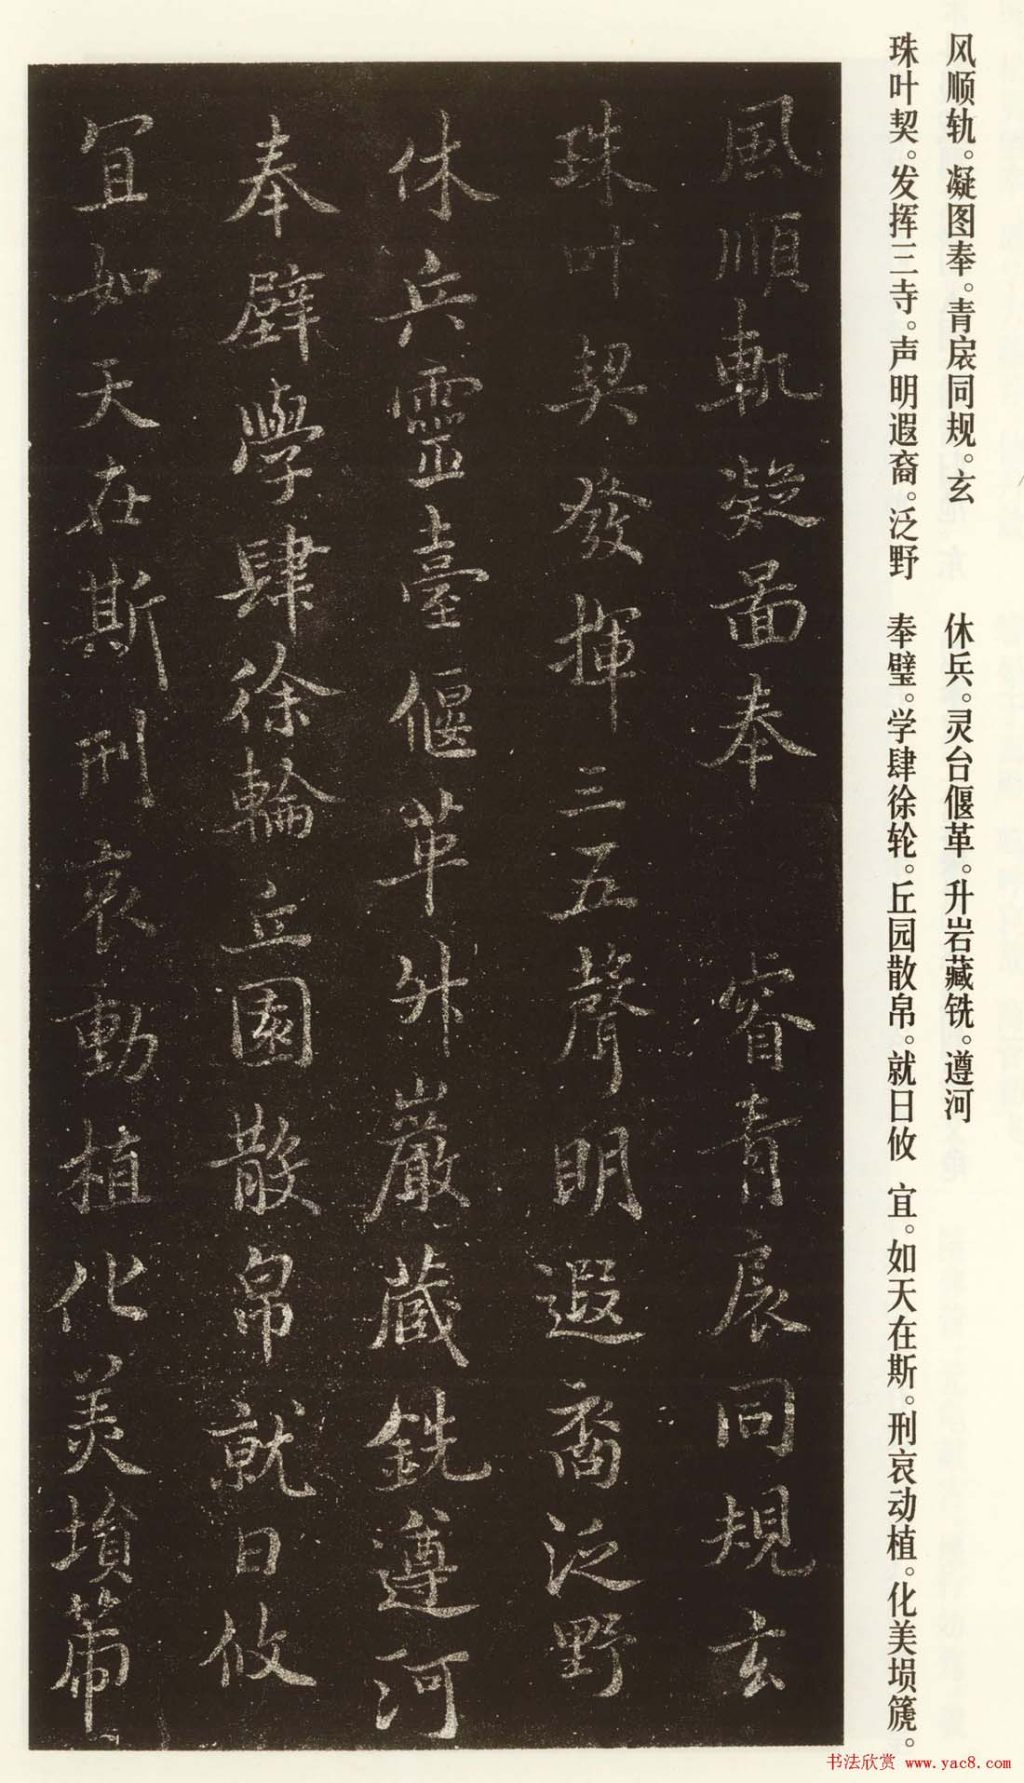 风顺轨。凝图奉。青扆同规。玄
珠叶契。发挥三寺。声明遐裔。泛野
休兵。灵台偃革。升岩藏铣。遵河
奉璧。学肆徐轮。丘园散帛。就日攸
宜。如天在斯。刑哀动植。化美埙篪。
風順軌凝啚奉 睿青扆同規玄
珠叶契發揮三五聲明遐裔泛野
休兵靈臺偃革升巖蔵銑遵河
奉璧學肆徐輪丘園散帛就日攸
宜如天在斯刑哀動植化美墳
书法欣赏 www.yac8.com